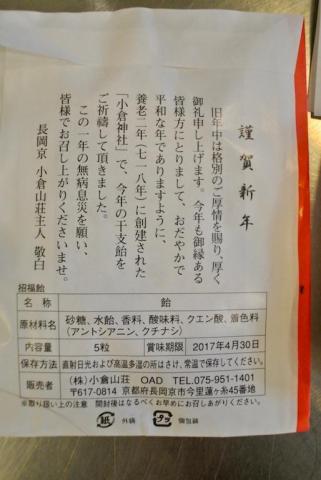 謹賀新年
旧年中は格別のご厚情を賜り、厚く
御礼申し上げます。今年も御縁ある
皆様方にとりまして、おだやかで
平和な年でありますように、
養老二年(七一八年)に創建された
「小倉神社」で、今年の干支飴を
ご祈禱して頂きました。
この一年の無病息災を願い、
皆様でお召し上がりくださいませ。
長岡京 小倉山荘主人 敬白
招福飴
名称 飴
原材料名 砂糖、水飴、香料、酸味料、クエン酸、着色料
(アントシアニン、クチナシ)
内容量 5粒 賞味期限 2017年4月30日
保存方法 直射日光および高温多湿の所はさけ、常温で保存してください。
販売者 (株)小倉山荘 OAD TEL.075-951-1401
〒617-0814 京都府長岡京市今里蓮ヶ糸45番地
※取り扱い上の注意 開封後はなるべくお早めにお召しあがりください。
紙 外袋 プラ 個包装